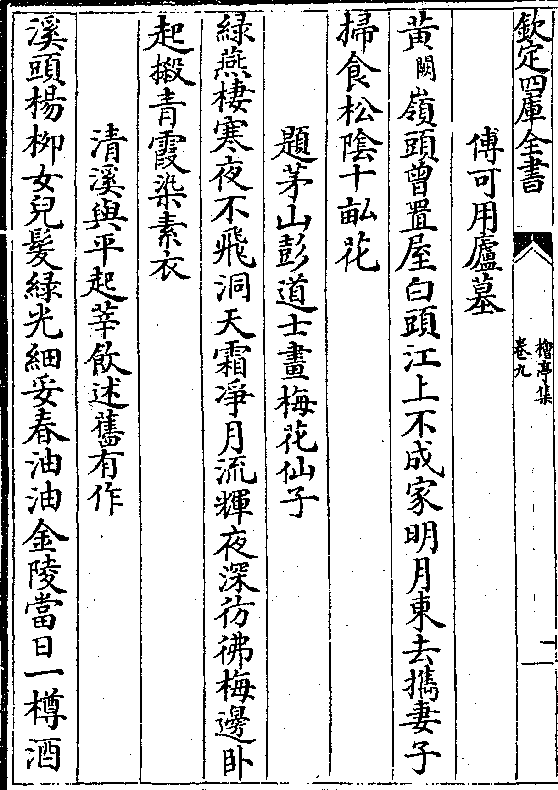 欽定四庫全書
檜亭集
卷九
二
傅可用廬墓
黃闕嶺頭曾置屋白頭江上不成家明月東去攜妻子
掃食松陰十畝花
題茅山彭道士畫梅花仙子
緑燕棲寒夜不飛洞天霜凈月流輝夜深彷彿梅邊卧
起搬青霞染素衣
清溪與平起莘飲述舊有作
溪頭楊柳女兒髮緑光細妥春油油金陵當日一樽酒